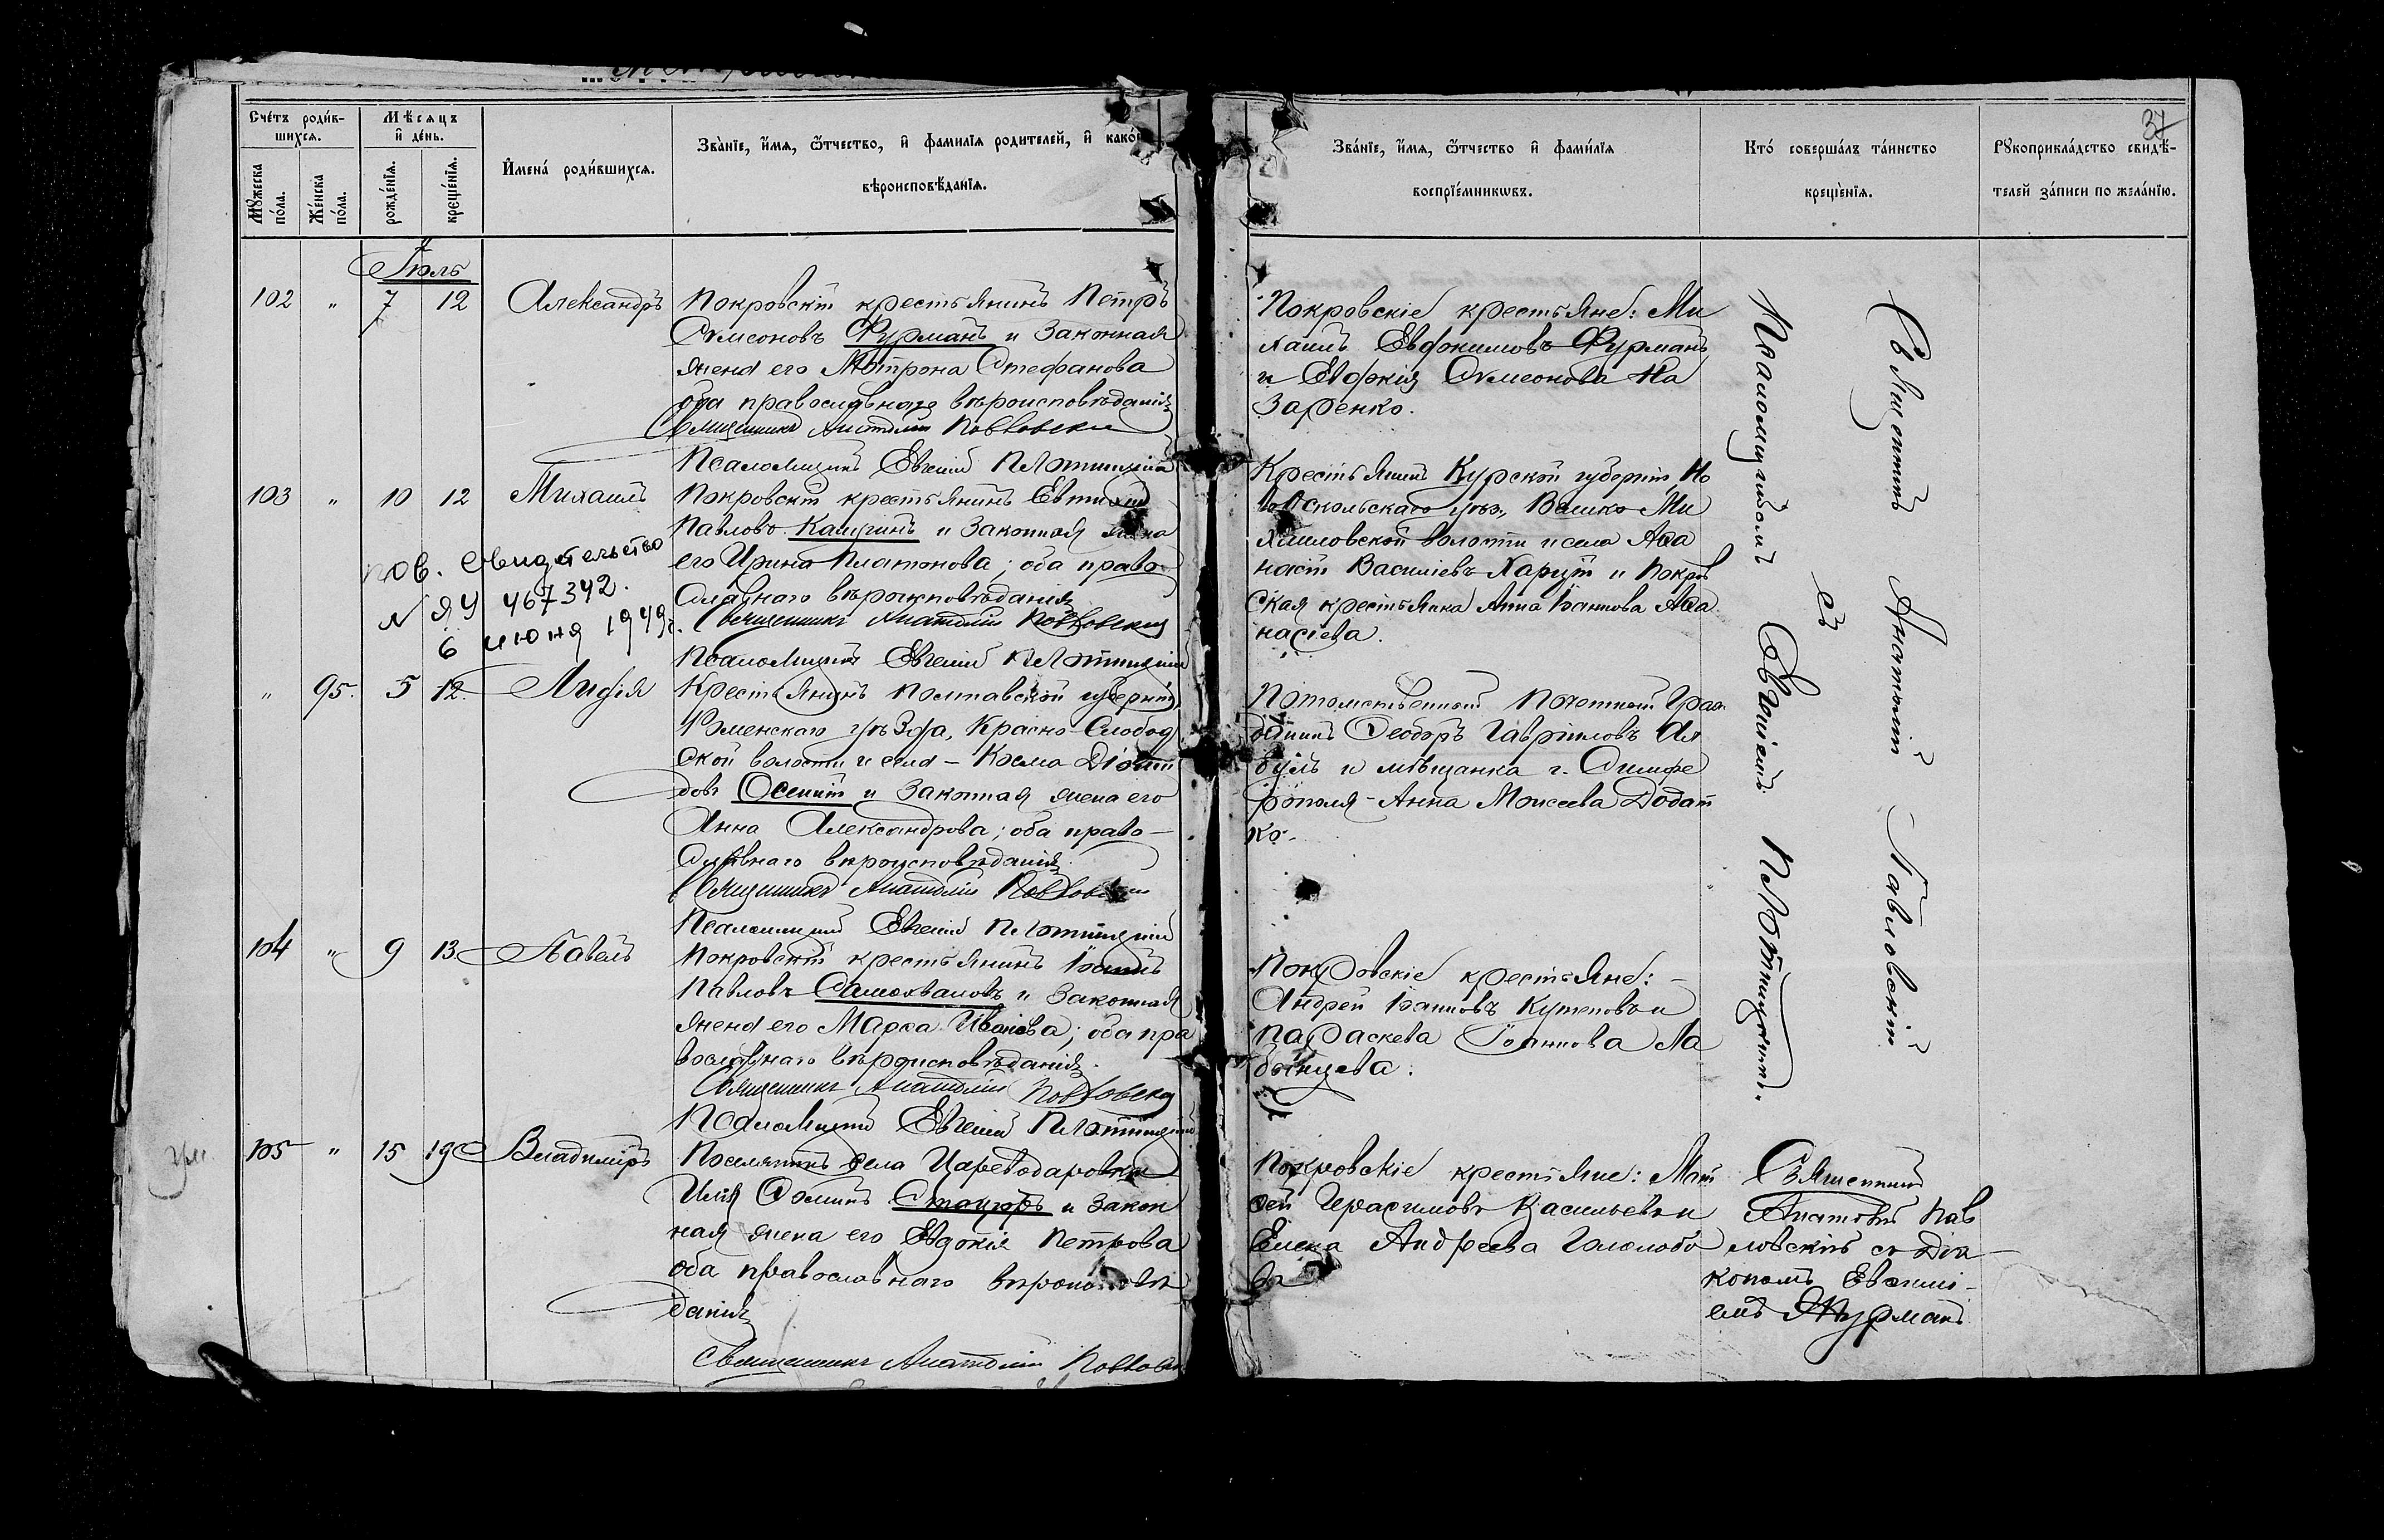 37
Счетъ родив-
шихся.
Мѣсяцъ
и день.
Мужеска
пола.
Женска
пола.
рожденія.
крещенія.
Имена родившихся.
Званіе, имя, отчество, и фамилія родителей, и какого
вѣроисповѣданія.
Званіе, имя, отчество и фамилія
воспріемниковъ.
Кто совершалъ таинство
крещенія.
Рукоприкладство свидѣ-
телей записи по желанію.
Іюль
102 " 7 12 Александръ
Покровскій крестьянинъ Петръ
Сѵмеоновъ Фурманъ и законная
жена его Мотрона Стефанова
оба православнаго вѣроисповѣданія
Священникъ Анатолій Павловскій
Псаломщикъ Евгеній Плотницкій
Покровскіе крестьяне: Ми
хаилъ Евфокимовъ Фурманъ
и Евфокія Сѵмеонова На
заренко.
103 " 10 12 Михаилъ
пов. свидетельство
N ЯУ 467342.
6 июня 1949г.
Покровскій крестьянинъ Евтихій
Павловъ Калугинъ и законная жена
его Ирина Платонова; оба право
славнаго вѣроисповѣданія
Священникъ Анатолій Павловскій
Псаломщикъ Евгеній Плотницкій
Крестьянинъ Курской губерніи Но
воОскольскаго уѣз., Велико-Ми
хаиловской волости и села Аѳа
насій Василіевъ и Покров
ская крестьянка Анна Іоаннова Аѳа
насіева.
" 95. 5 12 Лидія
Крестьянинъ Полтавской губерніи,
Роменскаго уѣзда, Красно-Слобод
ской волости и села - Косма Діоми
довъ и законная жена его
Анна Александрова; оба право-
славнаго вѣроисповѣданія.
Священникъ Анатолій Павловскій
Псаломщикъ Евгеній Плотницкій
Потомственный Почетный Граж
данинъ Ѳеодоръ Гавріиловъ
и мѣщанка г. Симфе
рополя - Анна Моисеева Додат
ко.
104 " 9 13 Павелъ
Покровскій крестьянинъ Іоаннъ
Павловъ Самохваловъ и законная
жена его Марѳа Иванова; оба пра
вославнаго вѣроисповѣданія.
Священникъ Анатолій Павловскій
Псаломщикъ Евгеній Плотницкій
Покровскіе крестьяне: -
Андрей Іоанновъ Кутеповъ и
Параскева Іоаннова Ла
бынцева.
Священникъ Анатолій Павловскій
съ
Псаломщикомъ Евгеніемъ Плотницкимъ.
105 " 15 19 Владиміръ
Поселянинъ села Цареводаровки
Илія Ѳоминъ и закон
ная жена его Евдокія Петрова
оба православнаго вѣроисповѣ
данія
Священникъ Анатолій Павловскій
Покровскіе крестьяне: Мат
ѳей Герасимовъ Васильевъ и
Елена Андреева Гололобо
ва
Священникъ
Анатолій Пав
ловскій съ Діа
кономъ Евгені-
емъ